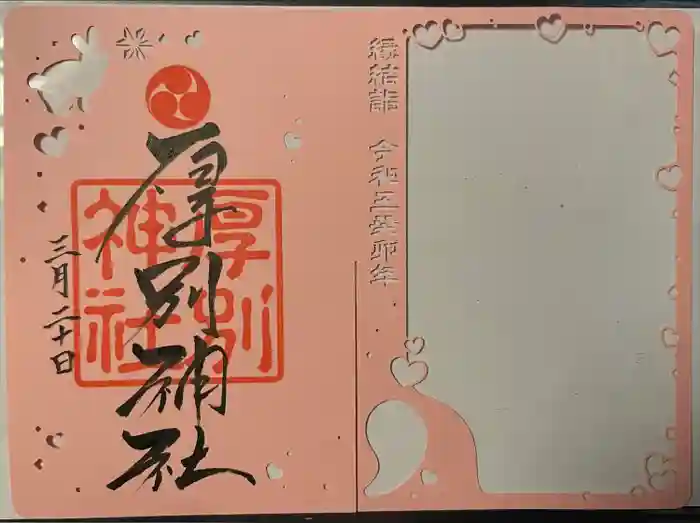 縁結詣 令和五癸卯年
厚別神社
厚別
神社
三月二十日